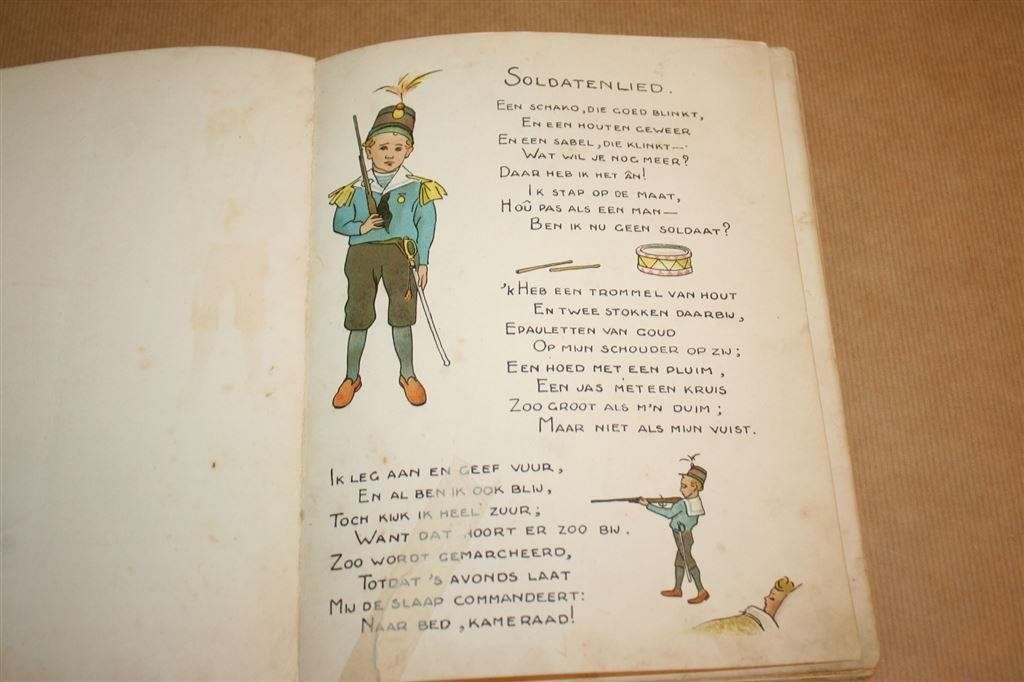 SOLDATENLIED.
EEN SCHAKO, DIE GOED BLINKT,
EN EEN HOUTEN GEWEER
EN EEN SABEL, DIE KLINKT—
WAT WIL JE NOG MEER?
DAAR HEB IK HET ÂN!
IK STAP OP DE MAAT,
HOÛ PAS ALS EEN MAN—
BEN IK NU GEEN SOLDAAT?
'K HEB EEN TROMMEL VAN HOUT
EN TWEE STOKKEN DAARBIJ,
EPAULETTEN VAN GOUD
OP MIJN SCHOUDER OP ZIJ;
EEN HOED MET EEN PLUIM,
EEN JAS MET EEN KRUIS
ZOO GROOT ALS M'N DUIM;
MAAR NIET ALS MIJN VUIST.
IK LEG AAN EN GEEF VUUR,
EN AL BEN IK OOK BLIJ,
TOCH KIJK IK HEEL ZUUR;
WANT DAT HOORT ER ZOO BIJ.
ZOO WORDT GEMARCHEERD,
TOTDAT 'S AVONDS LAAT
MIJ DE SLAAP COMMANDEERT:
NAAR BED, KAMERAAD!